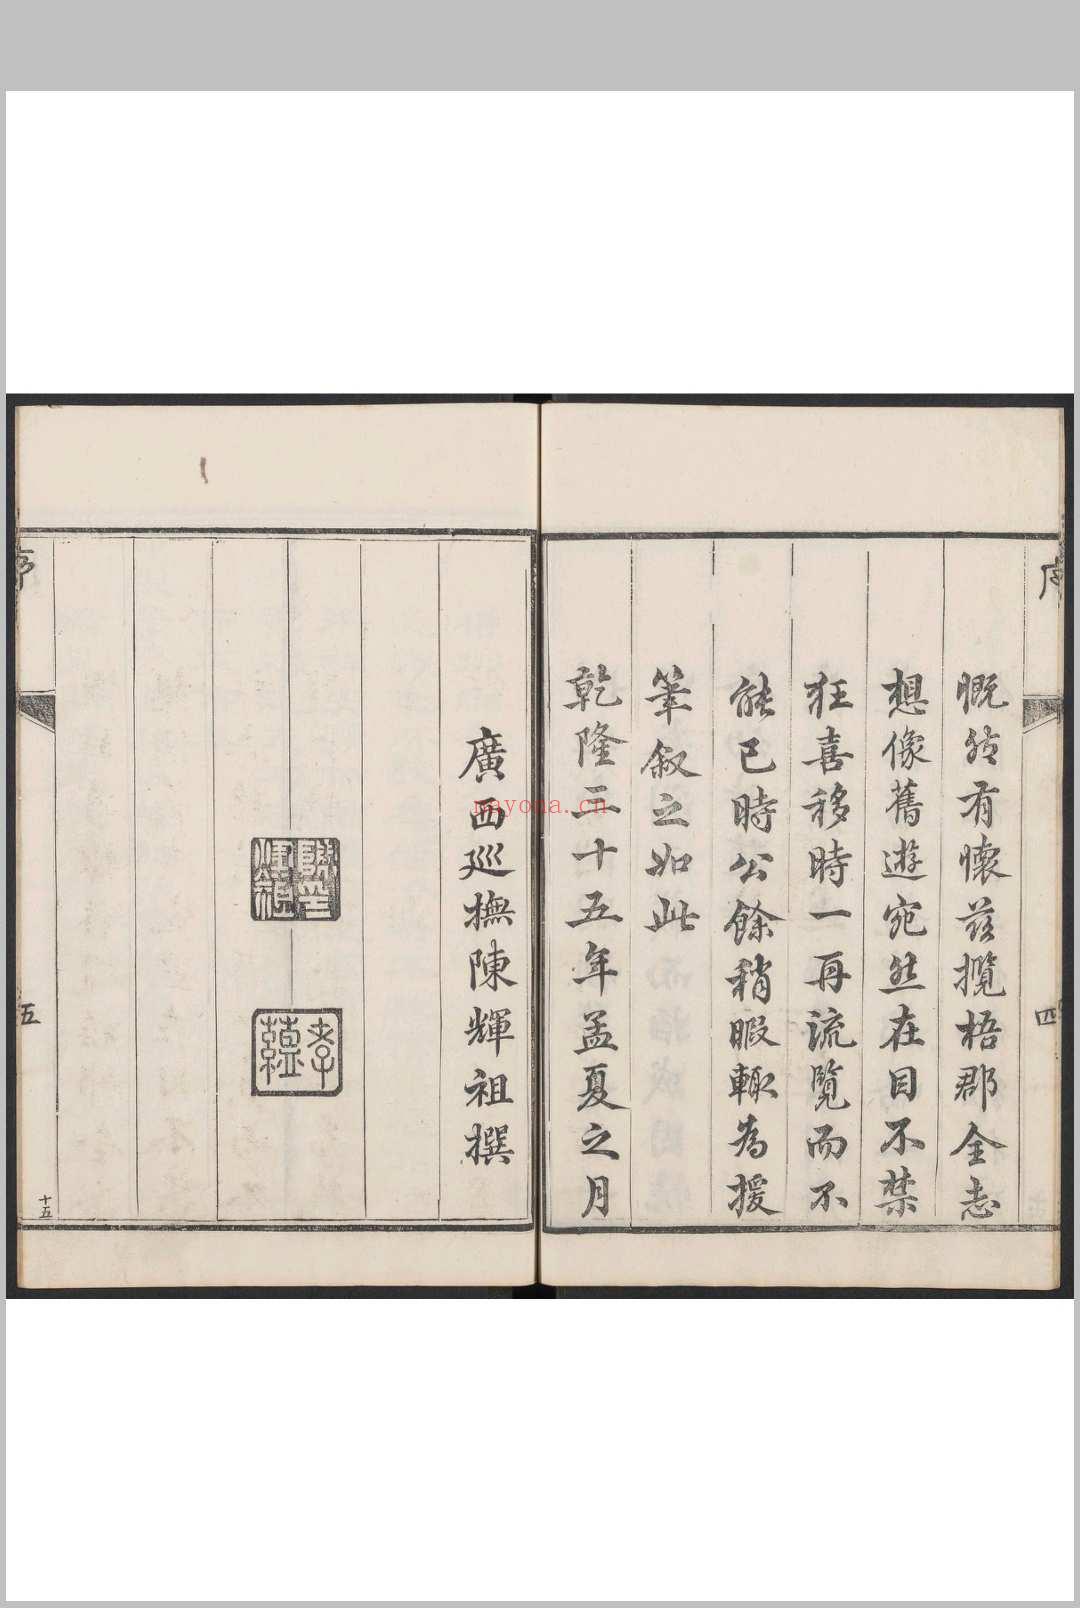 序
四
慨然有懷茲攬梧郡全志
想像舊遊宛然在目不禁
狂喜移時一再流覽而不
能已時公餘稍暇輒為援
筆叙之如此
乾隆三十五年孟夏之月
廣西巡撫陳輝祖撰
陳
輝祖
印
序
五
十五
nayona.cn